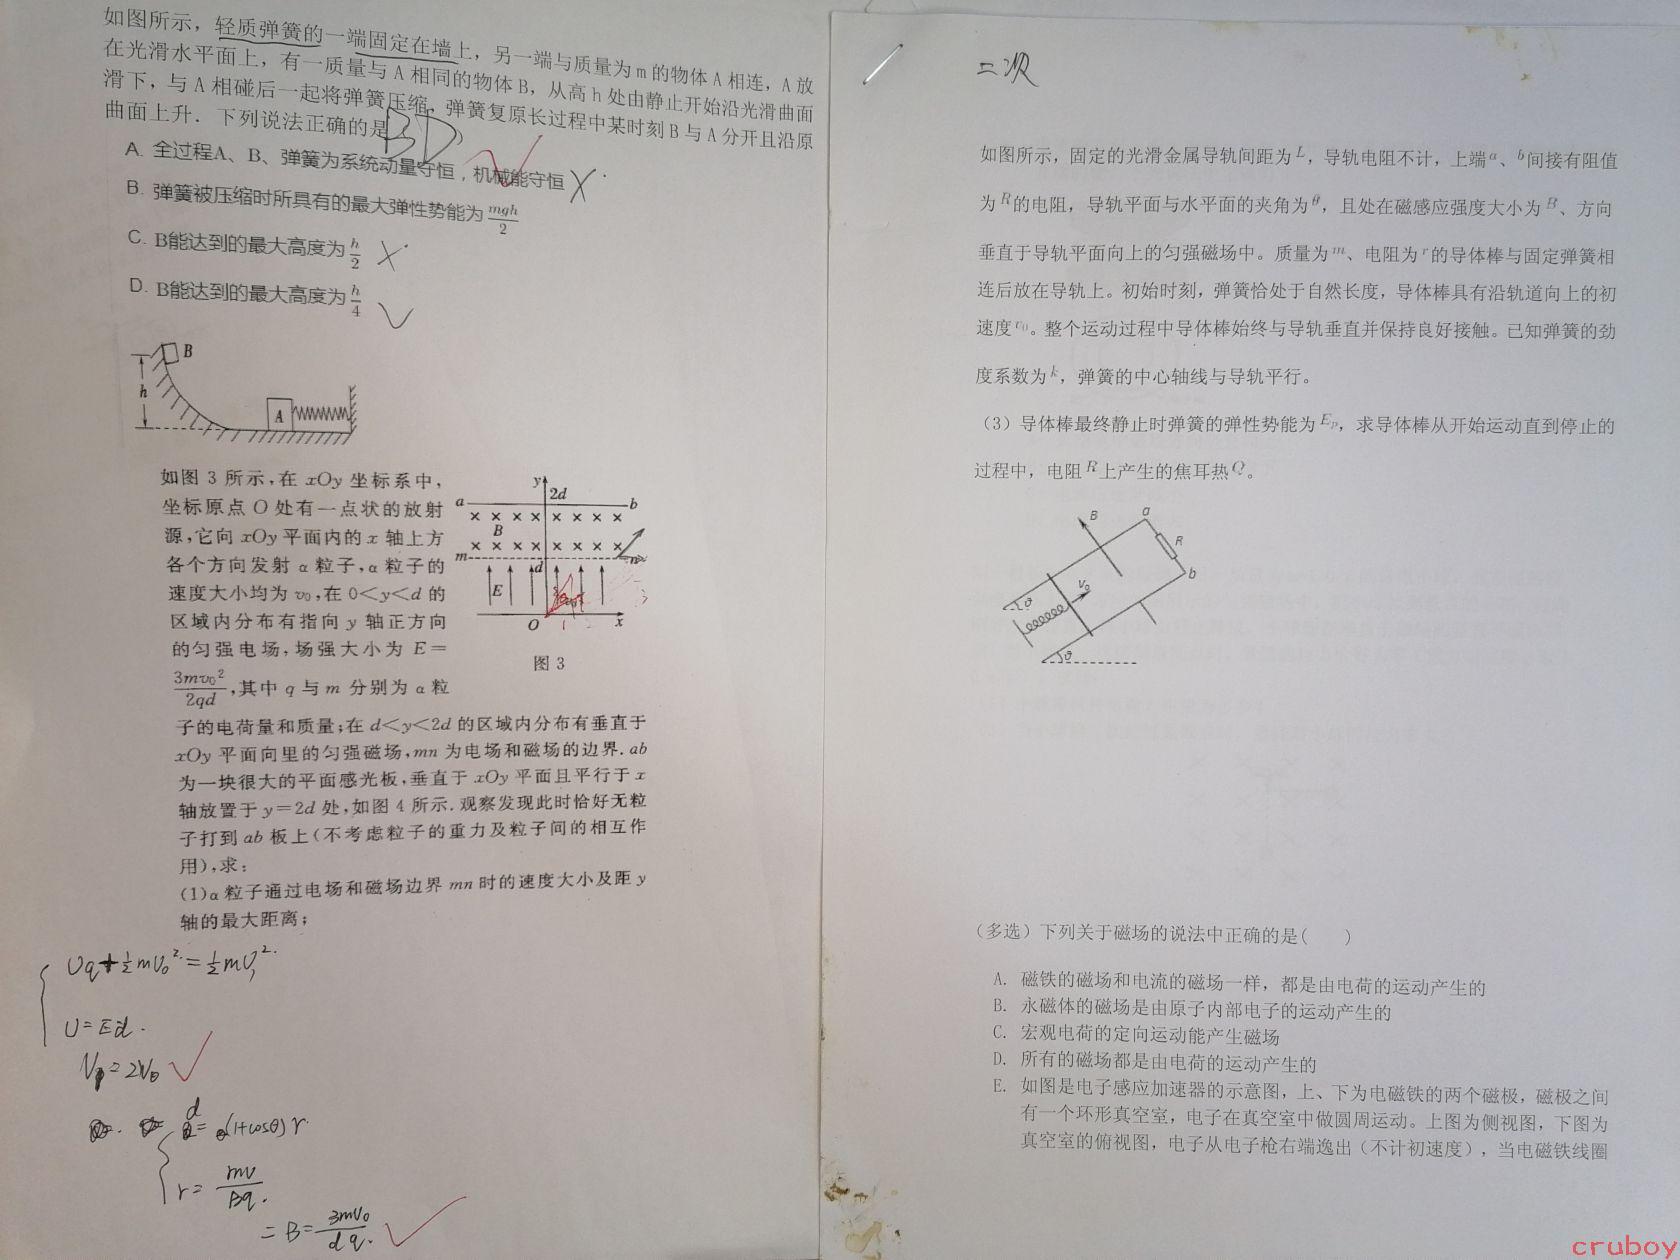 如图所示，轻质弹簧的一端固定在墙上，另一端与质量为m的物体A相连，A放
在光滑水平面上，有一质量与A相同的物体B，从高h处由静止开始沿光滑曲面
滑下，与A相碰后一起将弹簧压缩，弹簧复原长过程中某时刻B与A分开且沿原
曲面上升．下列说法正确的是
BD
A. 全过程A、B、弹簧为系统动量守恒，机械能守恒
B. 弹簧被压缩时所具有的最大弹性势能为mgh/2
C. B能达到的最大高度为h/2
D. B能达到的最大高度为h/4
B
h
A
如图 3 所示,在 xOy 坐标系中,
坐标原点 O 处有一点状的放射
源,它向 xOy 平面内的 x 轴上方
各个方向发射 α 粒子,α 粒子的
速度大小均为 v₀,在 0<y<d 的
区域内分布有指向 y 轴正方向
的匀强电场,场强大小为 E=
3mv₀²/2qd,其中 q 与 m 分别为 α 粒
子的电荷量和质量;在 d<y<2d 的区域内分布有垂直于
xOy 平面向里的匀强磁场,mn 为电场和磁场的边界.ab
为一块很大的平面感光板,垂直于 xOy 平面且平行于 x
轴放置于 y=2d 处,如图 4 所示.观察发现此时恰好无粒
子打到 ab 板上(不考虑粒子的重力及粒子间的相互作
用),求:
(1)α 粒子通过电场和磁场边界 mn 时的速度大小及距 y
轴的最大距离;
y
2d
a
b
B
m
d
n
E
O
x
图 3
Uq+½mv₀²=½mv₁²
U=Ed.
V₁=2V₀
d=(1+cosθ)r
r=mv/Bq.
=B=3mv₀/dq.
二次
如图所示，固定的光滑金属导轨间距为L，导轨电阻不计，上端a、b间接有阻值
为R的电阻，导轨平面与水平面的夹角为θ，且处在磁感应强度大小为B、方向
垂直于导轨平面向上的匀强磁场中。质量为m、电阻为r的导体棒与固定弹簧相
连后放在导轨上。初始时刻，弹簧恰处于自然长度，导体棒具有沿轨道向上的初
速度v₀。整个运动过程中导体棒始终与导轨垂直并保持良好接触。已知弹簧的劲
度系数为k，弹簧的中心轴线与导轨平行。
（3）导体棒最终静止时弹簧的弹性势能为Eₚ，求导体棒从开始运动直到停止的
过程中，电阻R上产生的焦耳热Q。
B
a
R
b
v₀
θ
θ
（多选）下列关于磁场的说法中正确的是(    )
A. 磁铁的磁场和电流的磁场一样，都是由电荷的运动产生的
B. 永磁体的磁场是由原子内部电子的运动产生的
C. 宏观电荷的定向运动能产生磁场
D. 所有的磁场都是由电荷的运动产生的
E. 如图是电子感应加速器的示意图，上、下为电磁铁的两个磁极，磁极之间
有一个环形真空室，电子在真空室中做圆周运动。上图为侧视图，下图为
真空室的俯视图，电子从电子枪右端逸出（不计初速度），当电磁铁线圈
cruboy